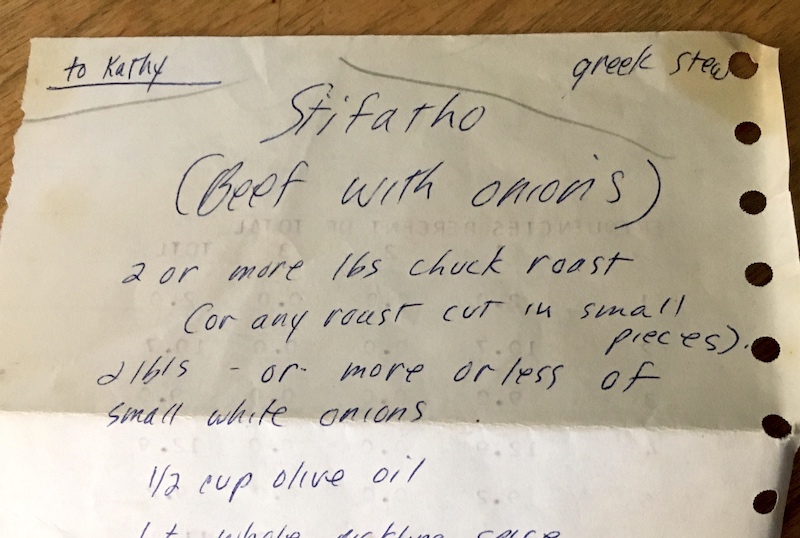 to Kathy
greek stew
Stifatho
(Beef with onions)
2 or more lbs chuck roast
(or any roast cut in small
pieces).
2 lbls - or - more or less of
small white onions
1/2 cup olive oil
1 t whole pickling